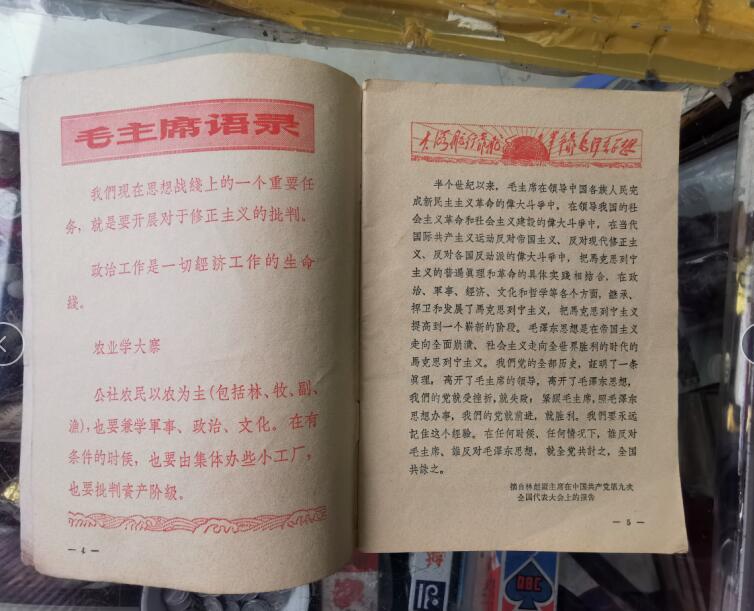 毛主席语录
我們現在思想战綫上的一个重要任
务，就是要开展对于修正主义的批判。
政治工作是一切經济工作的生命
綫。
农业学大寨
公社农民以农为主(包括林、牧、副、
漁)，也要兼学軍事、政治、文化。在有
条件的时候，也要由集体办些小工厂，
也要批判資产阶級。
— 4 —
大海航行靠舵手 干革命靠毛泽东思想
半个世紀以来，毛主席在領导中国各族人民完
成新民主主义革命的偉大斗爭中，在領导我国的社
会主义革命和社会主义建設的偉大斗爭中，在当代
国际共产主义运动反对帝国主义、反对現代修正主
义、反对各国反动派的偉大斗爭中，把馬克思列宁
主义的普遍眞理和革命的具体实践相結合，在政
治、軍事、經济、文化和哲学等各个方面，継承、
捍卫和发展了馬克思列宁主义，把馬克思列宁主义
提高到一个嶄新的阶段。毛澤东思想是在帝国主义
走向全面崩潰、社会主义走向全世界胜利的时代的
馬克思列宁主义。我們党的全部历史，証明了一条
眞理，离开了毛主席的領导，离开了毛澤东思想，
我們的党就受挫折，就失敗，紧跟毛主席，照毛澤东
思想办事，我們的党就前进，就胜利。我們要永远
記住这个經驗。在任何时候、任何情况下，誰反对
毛主席、誰反对毛澤东思想，就全党共討之，全国
共誅之。
摘自林彪副主席在中国共产党第九次
全国代表大会上的报告
— 5 —
ABC